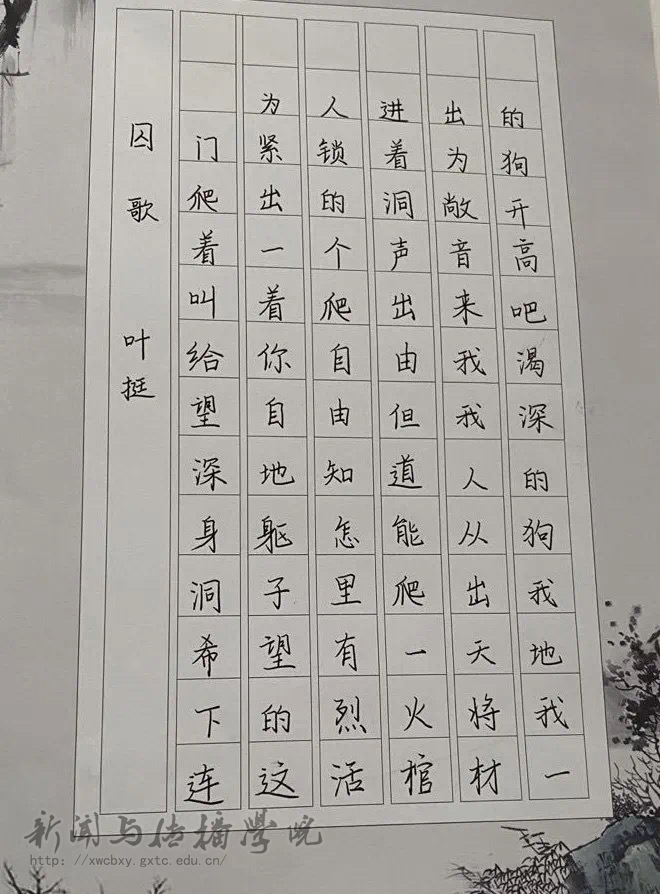 囚歌
叶挺
为人进出的
门紧锁着为狗
爬出的洞敞开
着一个声音高
叫着爬出来吧
给你自由我渴
望自由但我深
深地知道人的
身躯怎能从狗
洞子里爬出我
希望有一天地
下的烈火将我
连这活棺材一
新闻与传播学院
http://xwcbxy.gxtc.edu.cn/